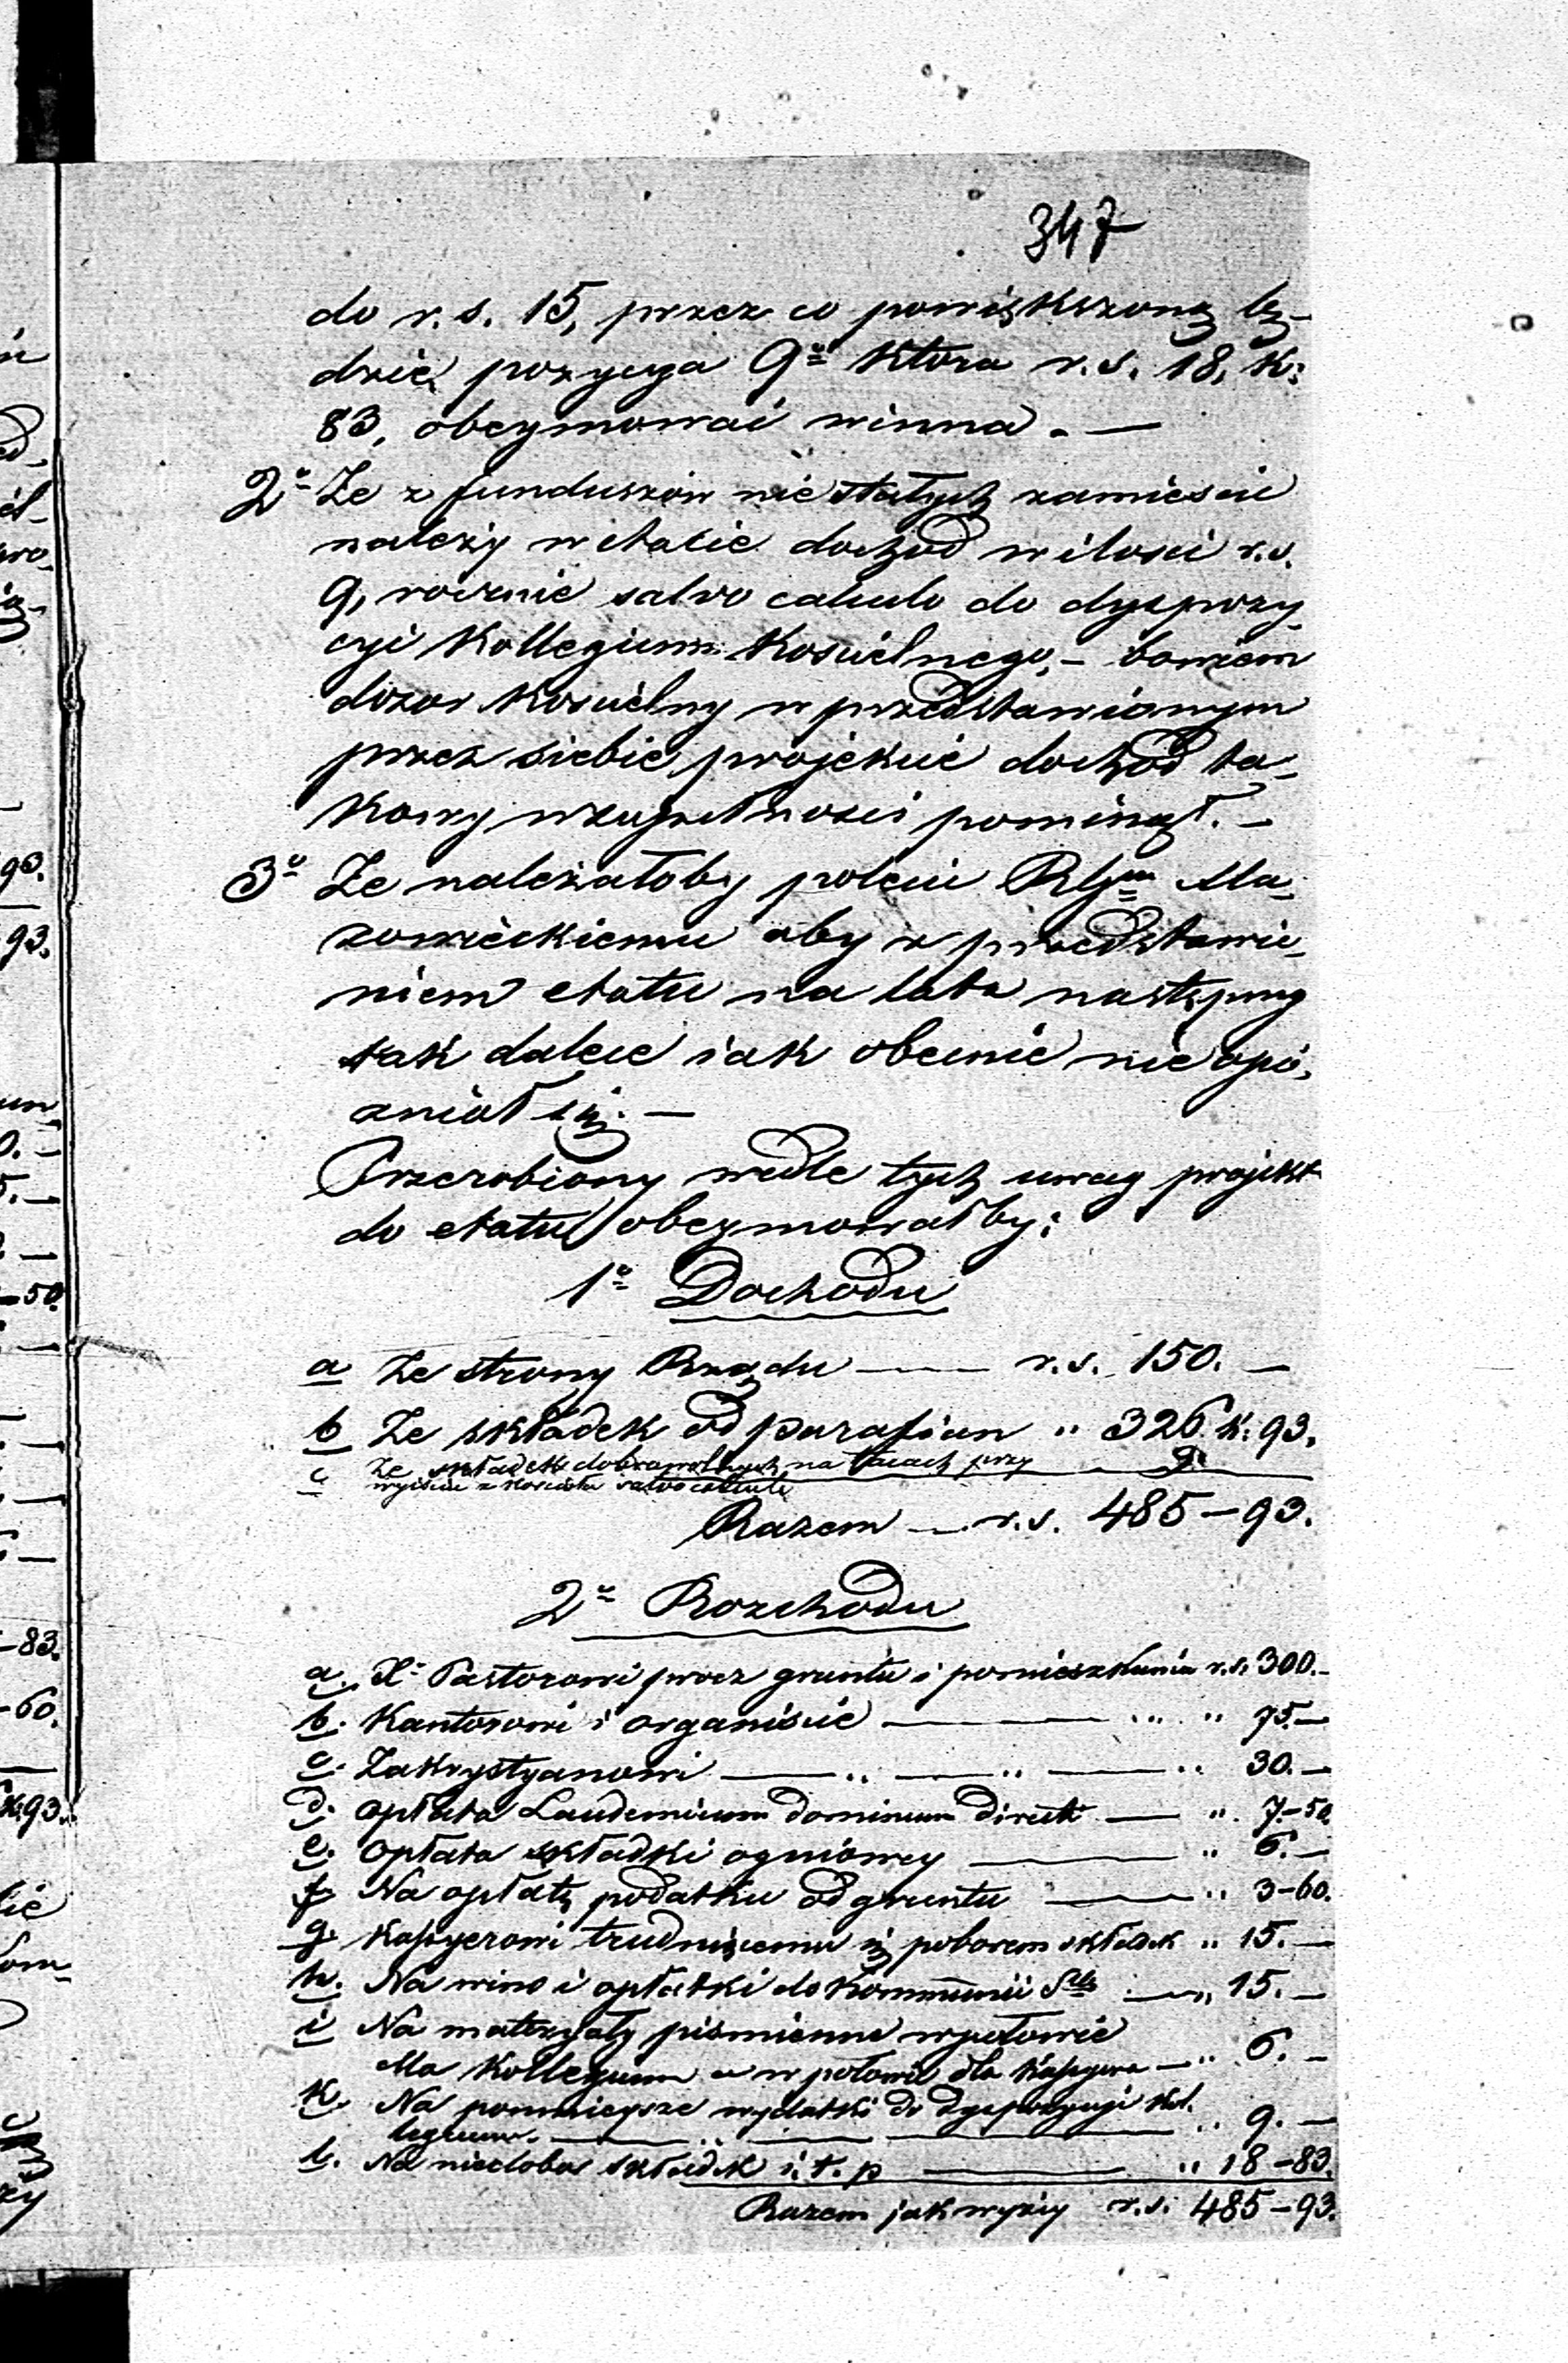 347
do r. s. 15, przez co powiększoną bę-
dzie pozycya 9ª ktora r. s. 18, k:
83, obeymować winna. —
2º Że z funduszów nie stałych zamieścić
należy w etacie dochod w ilości r. s.
9, rocznie salvo calculo do dyspozy
cyi Kollegium Kościelnego, - bowiem
dozor Kościelny w przedstawionym
przez siebie projekcie dochod ta-
kowy w zupełności pominął. —
3º Że należałoby polecić Rządowi Ma-
zowieckiemu aby z przedstawie-
niem etatu na lata następne
tak dalece iak obecnie nie opó-
zniał się. —
Przerobiony wedle tych uwag projekt
do etatu obeymował by:
1º Dochodu
a Ze strony Rządu — r. s. 150. —
b Ze składek od parafian " 326 k: 93.
c Ze składek dobrowolnych na tacach przy
wyjściu z Kościoła salvo calculo 9.
Razem — r. s. 485 – 93.
2º Rozchodu
a. X. Pastorowi procz gruntu i pomieszkania r. s. 300. –
b. Kantorowi i organiście — " " 75. —
c. Zakrystyanowi — " — " — " 30. —
d. opłata Laudemium dominium directi — " 7. – 50.
e. opłata składki ogniowey — " 6. —
f. Na opłatę podatku od gruntu — " 3 – 60.
g. Kassyerowi trudniącemu się poborem składek " 15. —
h. Na wino i opłatki do Kommunii Stej — " 15. —
i Na materyały piśmienne w połowie
dla Kollegium a w połowie dla Kassyera — " 6. —
k. Na pomnieysze wydatki do dyspozycyi Kol-
legium. — " 9. —
l. Na niedobor składek i. t. p — " 18 – 83.
Razem jak wyżey r. s. 485 – 93.